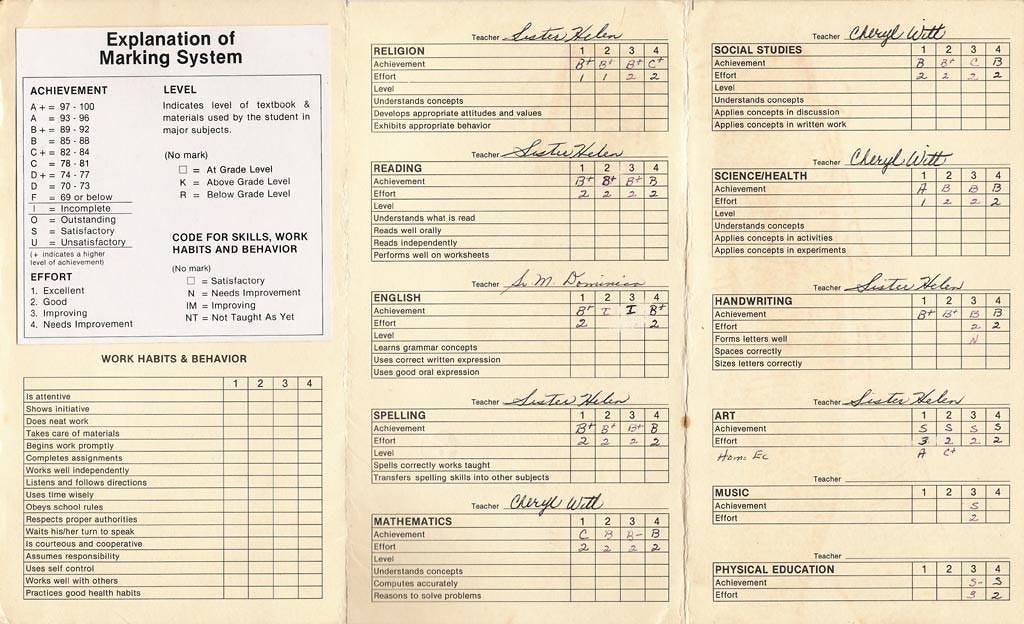 Explanation of
Marking System
ACHIEVEMENT
A + = 97 - 100
A = 93 - 96
B + = 89 - 92
B = 85 - 88
C + = 82 - 84
C = 78 - 81
D + = 74 - 77
D = 70 - 73
F = 69 or below
I = Incomplete
O = Outstanding
S = Satisfactory
U = Unsatisfactory
(+ indicates a higher
level of achievement)
EFFORT
1. Excellent
2. Good
3. Improving
4. Needs Improvement
LEVEL
Indicates level of textbook &
materials used by the student in
major subjects.
(No mark)
□ = At Grade Level
K = Above Grade Level
R = Below Grade Level
CODE FOR SKILLS, WORK
HABITS AND BEHAVIOR
(No mark)
□ = Satisfactory
N = Needs Improvement
IM = Improving
NT = Not Taught As Yet
WORK HABITS & BEHAVIOR
1 2 3 4
Is attentive
Shows initiative
Does neat work
Takes care of materials
Begins work promptly
Completes assignments
Works well independently
Listens and follows directions
Uses time wisely
Obeys school rules
Respects proper authorities
Waits his/her turn to speak
Is courteous and cooperative
Assumes responsibility
Uses self control
Works well with others
Practices good health habits
Teacher Sister Helen
RELIGION 1 2 3 4
Achievement B+ B+ B+ C+
Effort 1 1 2 2
Level
Understands concepts
Develops appropriate attitudes and values
Exhibits appropriate behavior
Teacher Sister Helen
READING 1 2 3 4
Achievement B+ B+ B+ B
Effort 2 2 2 2
Level
Understands what is read
Reads well orally
Reads independently
Performs well on worksheets
Teacher Sr M. Dominica
ENGLISH 1 2 3 4
Achievement B+ I I B+
Effort 2 2
Level
Learns grammar concepts
Uses correct written expression
Uses good oral expression
Teacher Sister Helen
SPELLING 1 2 3 4
Achievement B+ B+ B+ B
Effort 2 2 2 2
Level
Spells correctly works taught
Transfers spelling skills into other subjects
Teacher Cheryl Witt
MATHEMATICS 1 2 3 4
Achievement C B B- B
Effort 2 2 2 2
Level
Understands concepts
Computes accurately
Reasons to solve problems
Teacher Cheryl Witt
SOCIAL STUDIES 1 2 3 4
Achievement B B+ C B
Effort 2 2 2 2
Level
Understands concepts
Applies concepts in discussion
Applies concepts in written work
Teacher Cheryl Witt
SCIENCE/HEALTH 1 2 3 4
Achievement A B B B
Effort 1 2 2 2
Level
Understands concepts
Applies concepts in activities
Applies concepts in experiments
Teacher Sister Helen
HANDWRITING 1 2 3 4
Achievement B+ B+ B B
Effort 2 2
Forms letters well N
Spaces correctly
Sizes letters correctly
Teacher Sister Helen
ART 1 2 3 4
Achievement S S S S
Effort 3 2 2 2
Home Ec A C+
Teacher
MUSIC 1 2 3 4
Achievement S
Effort 2
Teacher
PHYSICAL EDUCATION 1 2 3 4
Achievement S- S
Effort 3 2